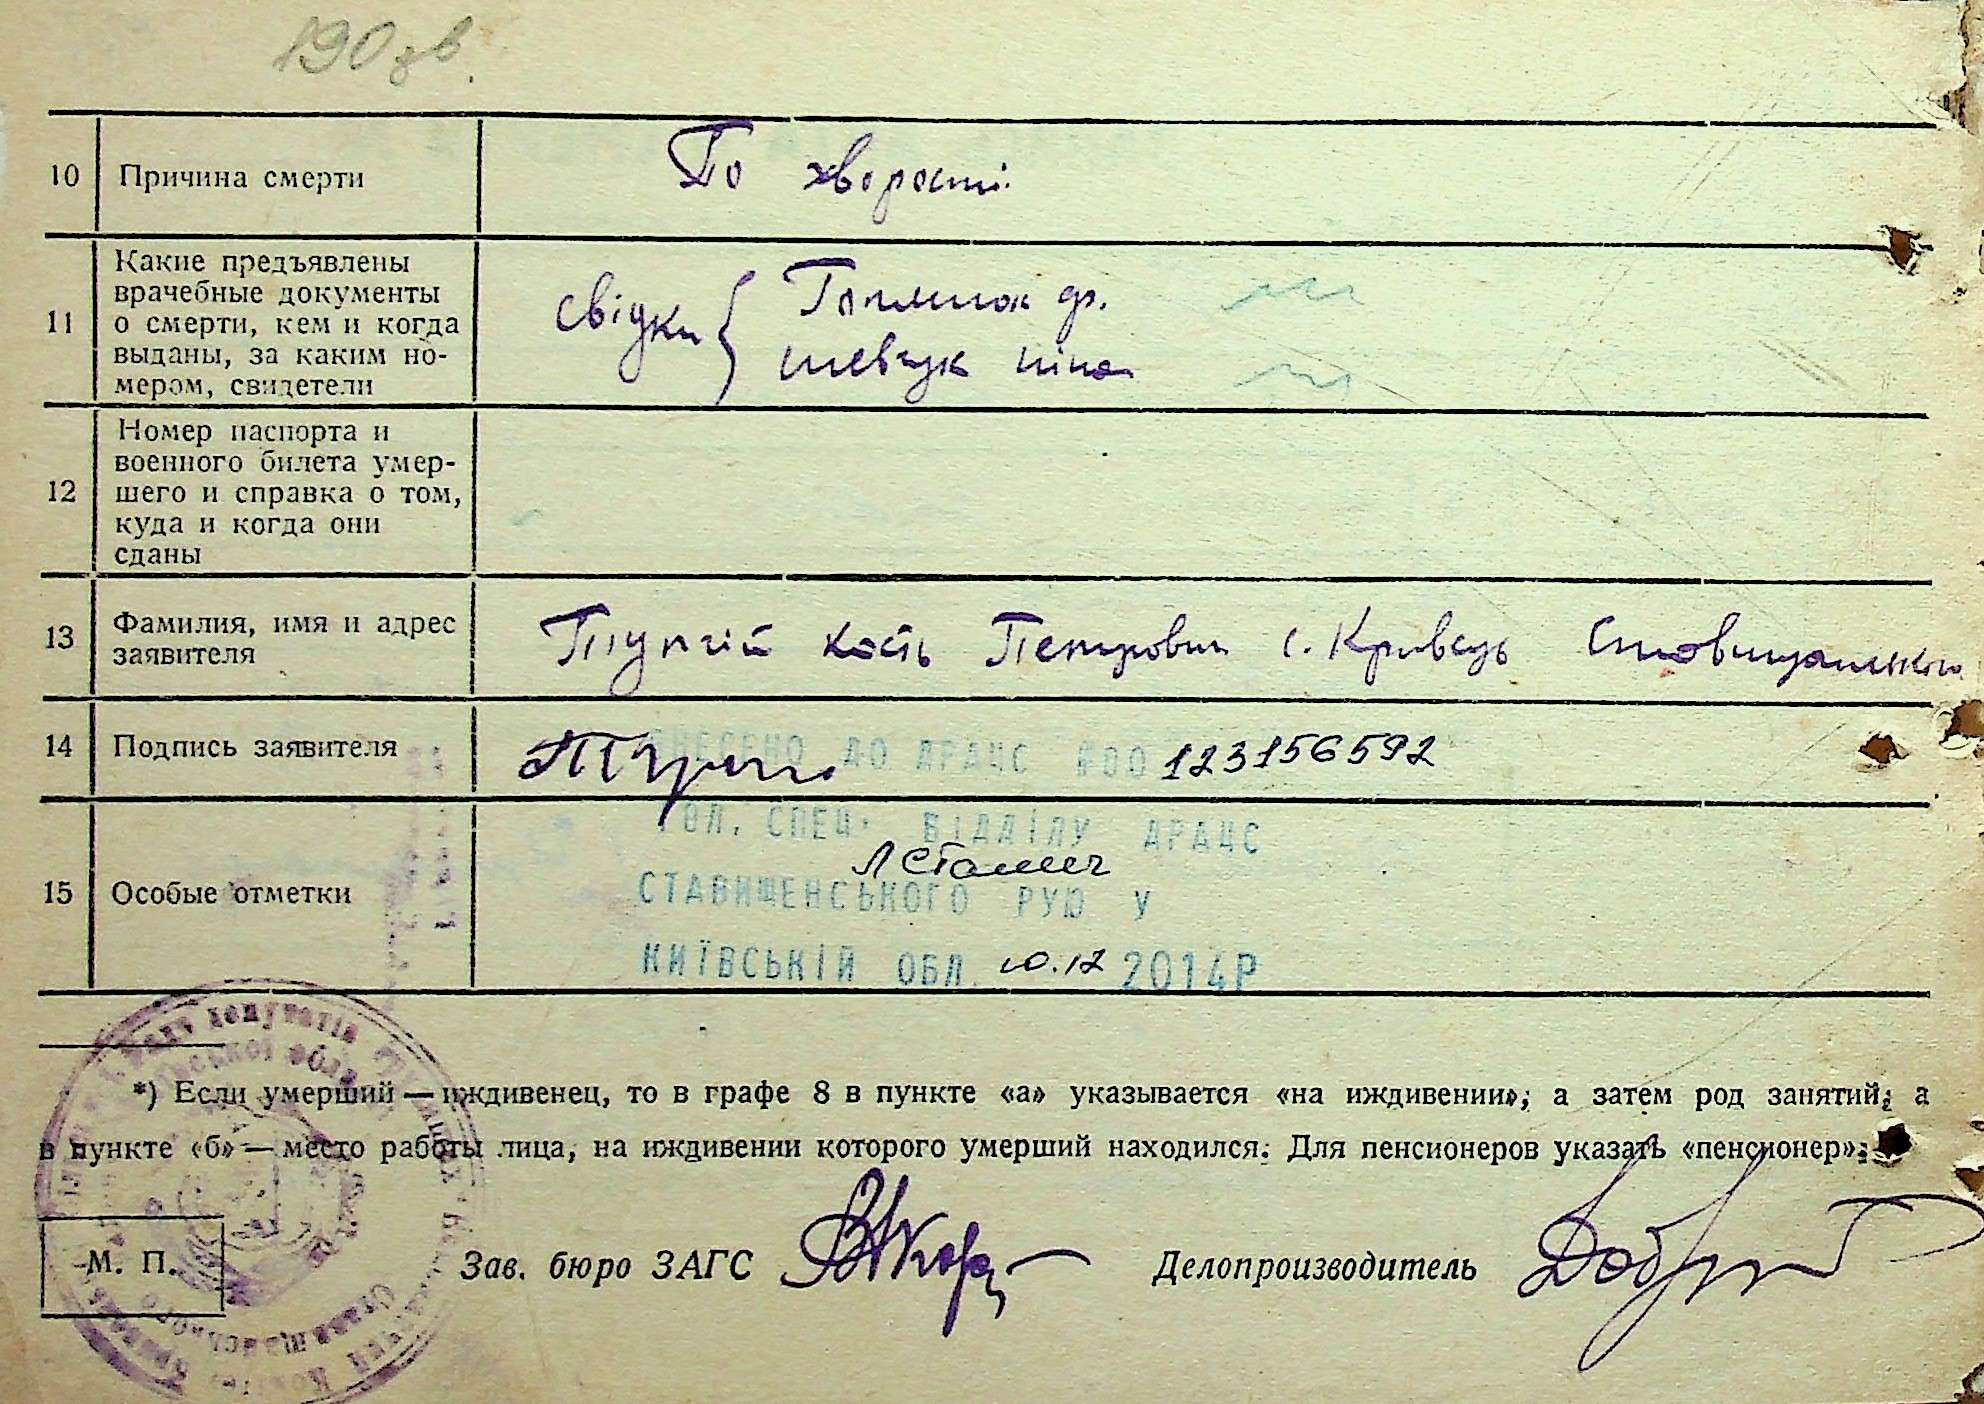 190 зв.
10 Причина смерти По хворості.
11 Какие предъявлены
врачебные документы
о смерти, кем и когда
выданы, за каким но-
мером, свидетели
свідки
Шевчук Ніна
12 Номер паспорта и
военного билета умер-
шего и справка о том,
куда и когда они
сданы
13 Фамилия, имя и адрес
заявителя
Кость Петрович с. Кривець
14 Подпись заявителя
ВНЕСЕНО ДО ДРАЦС №00123156592
15 Особые отметки
ГОЛ. СПЕЦ. ВІДДІЛУ ДРАЦС
СТАВИЩЕНСЬКОГО РУЮ У
КИЇВСЬКІЙ ОБЛ. 10.12 2014Р
*) Если умерший — иждивенец, то в графе 8 в пункте «а» указывается «на иждивении», а затем род занятий, а
в пункте «б» — место работы лица, на иждивении которого умерший находился. Для пенсионеров указать «пенсионер».
М. П.
Зав. бюро ЗАГС
Делопроизводитель